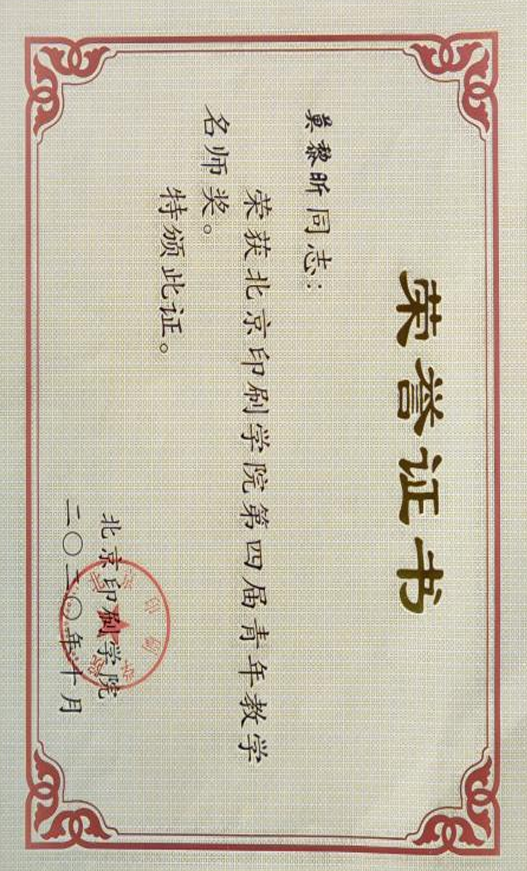 荣誉证书
莫黎昕同志：
荣获北京印刷学院第四届青年教学
名师奖。
特颁此证。
北京印刷学院
二〇二〇年十月